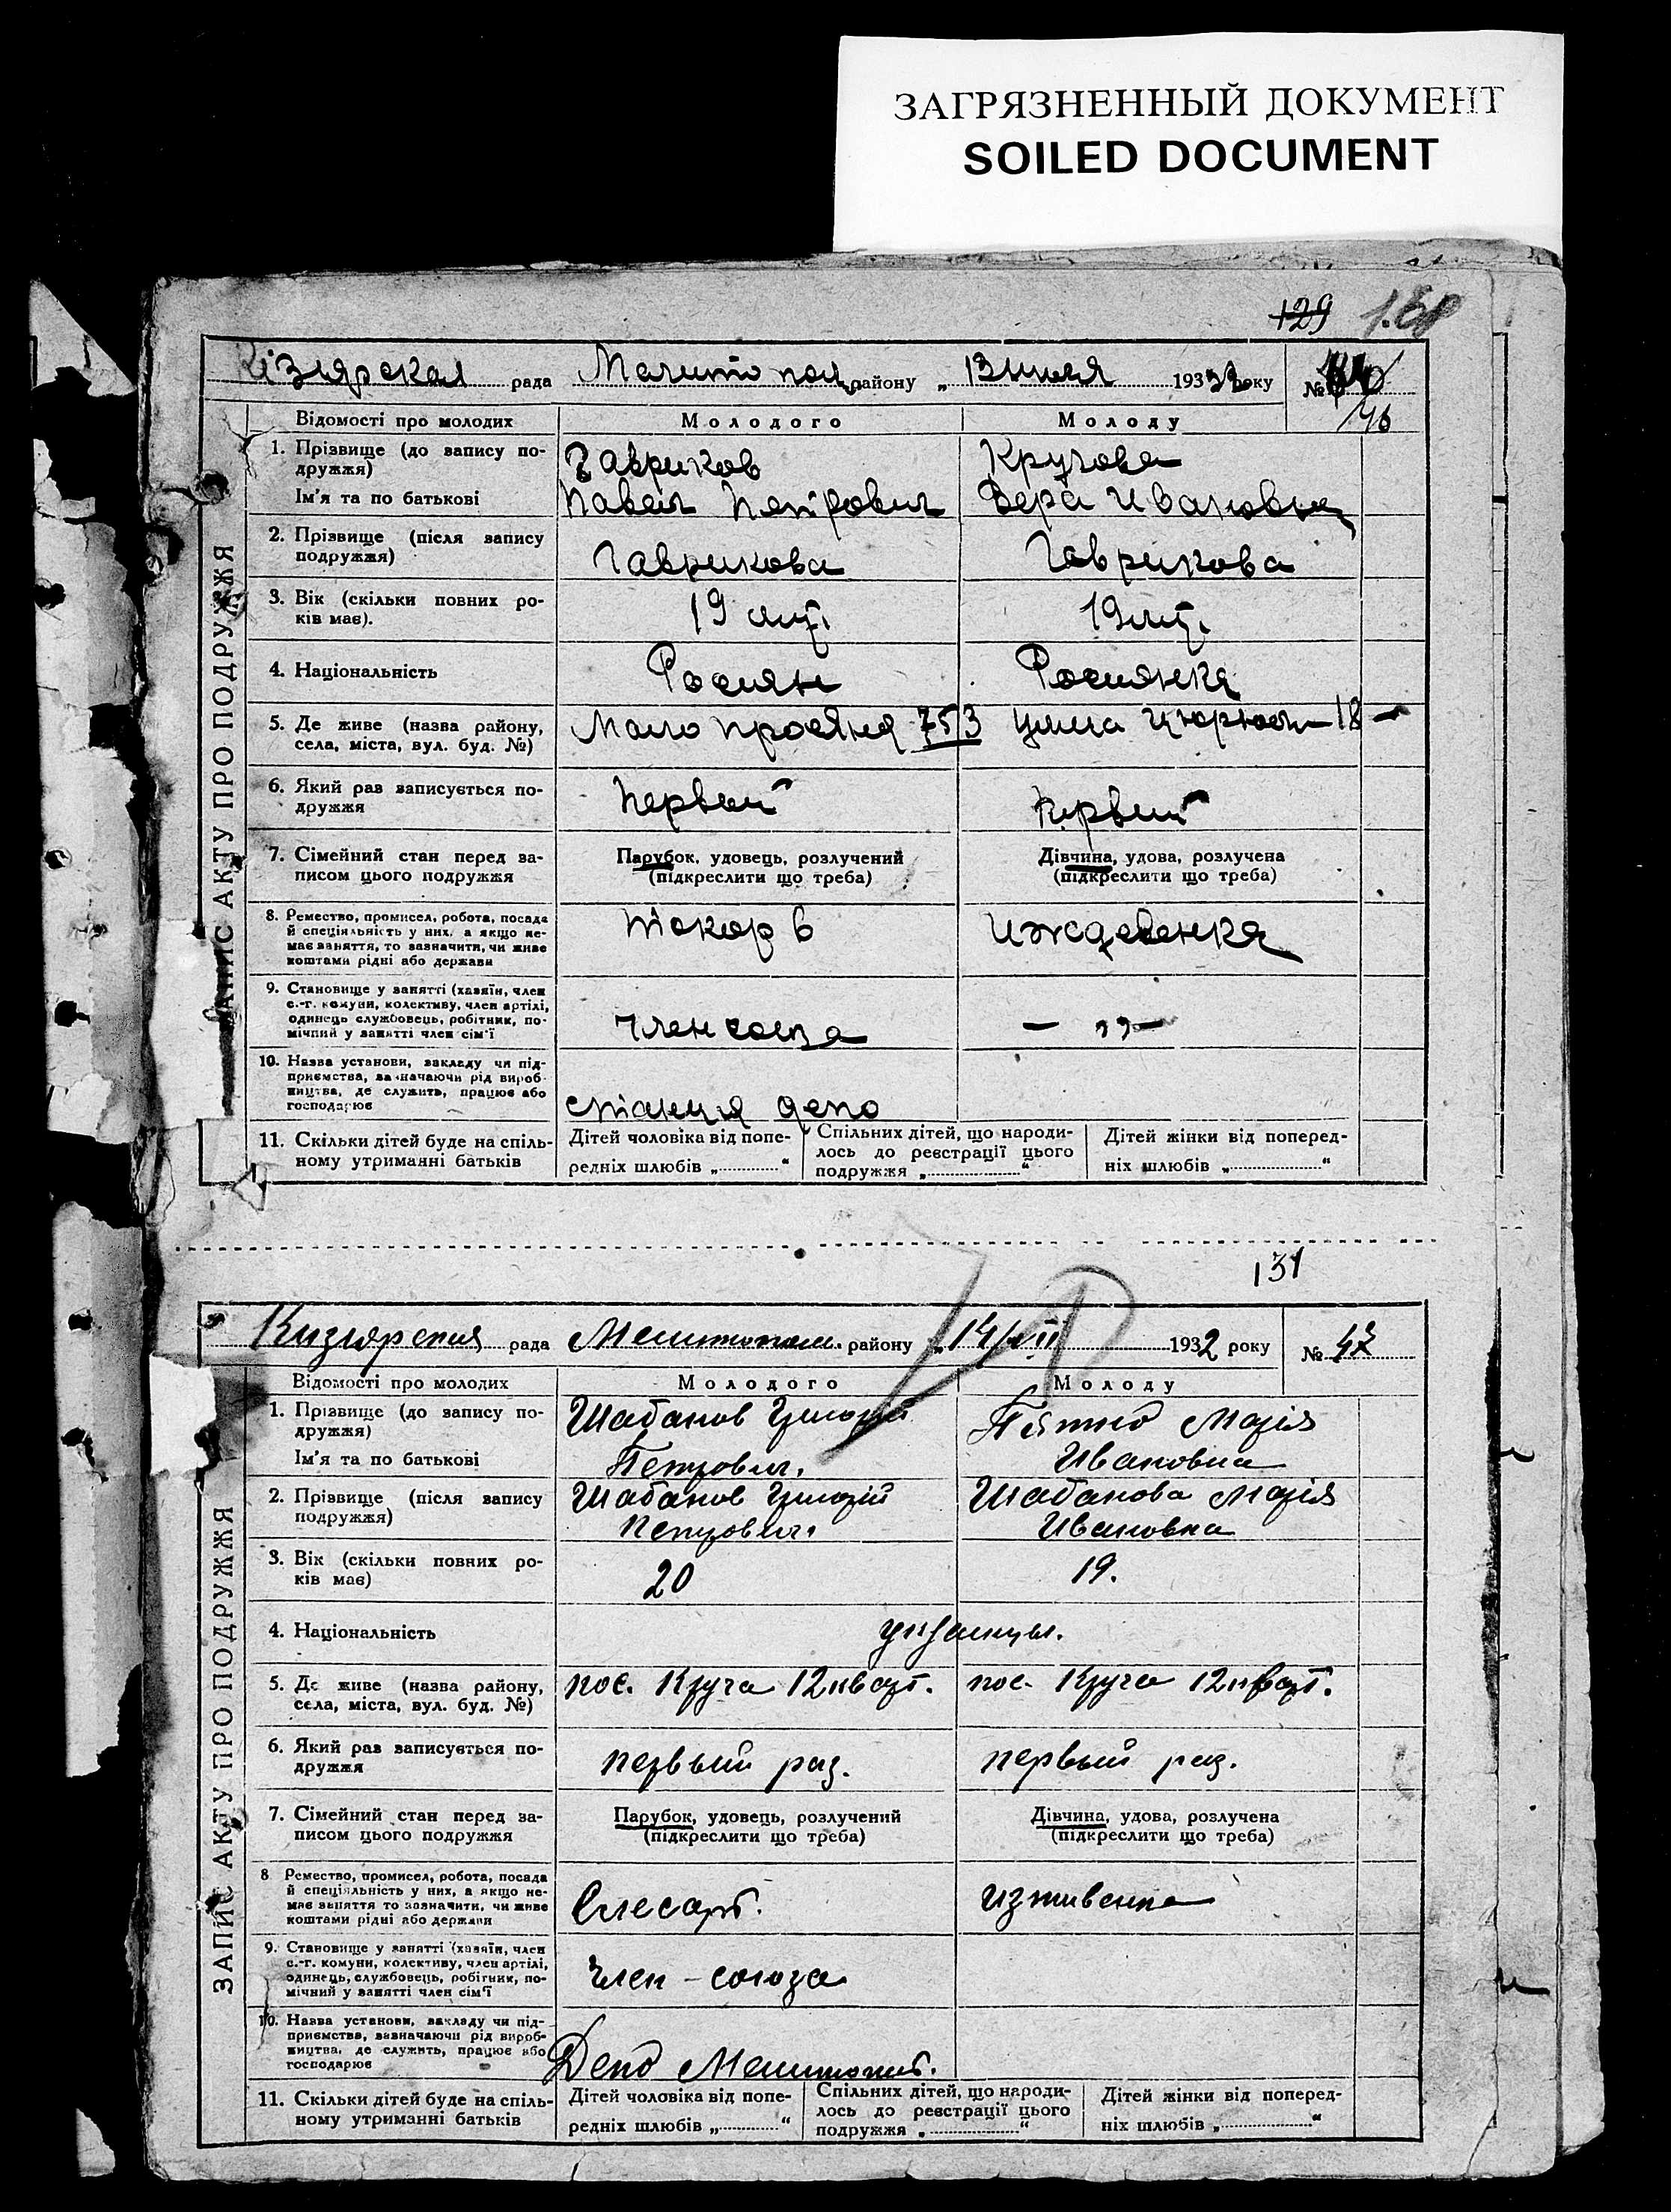 ЗАГРЯЗНЕННЫЙ ДОКУМЕНТ
SOILED DOCUMENT
129
Кізіярская рада Мелитопол району „ 13 июля 1932 року №
46
Відомості про молодих Молодого Молоду
1. Прізвище (до запису по-
дружжя) Гавриков
Ім'я та по батькові Павел Петрович Вера Ивановна
2. Прізвище (після запису
подружжя) Гаврикова Гаврикова
3. Вік (скільки повних ро-
ків має). 19 лит. 19 лит.
4. Національність Росиян Росиянка
5. Де живе (назва району,
села, міста, вул. буд. №) 753 18
6. Який раз записується по-
дружжя Первый Первый
7. Сімейний стан перед за- Парубок, удовець, розлучений Дівчина, удова, розлучена
писом цього подружжя (підкреслити що треба) (підкреслити що треба)
8. Ремество, промисел, робота, посада
й спеціяльність у них, а якщо не-
має заняття, то зазначити, чи живе
коштами рідні або держави
Иждевенка
9. Становище у занятті (хазяїн, член
с.-г. комуни, колективу, член артілі,
одинець службовець, робітник, по-
мічний у занятті член сім'ї
член союза — „ —
10. Назва установи, закладу чи під-
приємства, зазначаючи рід вироб-
ництва, де служить, працює або
господарює
станция депо
11. Скільки дітей буде на спіль- Дітей чоловіка від попе- Спільних дітей, що народи- Дітей жінки від поперед-
ному утриманні батьків редніх шлюбів „ “ лось до реєстрації цього ніх шлюбів „ “
подружжя „ “
ЗАПИС АКТУ ПРО ПОДРУЖЖЯ
131
Кизиярская рада Мелитопол. району „ 14/VII 1932 року № 47
Відомості про молодих Молодого Молоду
1. Прізвище (до запису по- Шабанов Григорій Марія
дружжя)
Ім'я та по батькові Петрович. Ивановна
2. Прізвище (після запису Шабанов Григорій Шабанова Марія
подружжя) Петрович. Ивановна
3. Вік (скільки повних ро-
ків має) 20 19.
4. Національність украинцы.
5. Де живе (назва району, пос. Круча 12 кварт. пос. Круча 12 кварт.
села, міста, вул. буд. №)
6. Який раз записується по- первый раз. первый раз.
дружжя
7. Сімейний стан перед за- Парубок, удовець, розлучений Дівчина, удова, розлучена
писом цього подружжя (підкреслити що треба) (підкреслити що треба)
8 Ремество, промисел, робота, посада
й спеціяльність у них, а якщо не-
має заняття то зазначити, чи живе
коштами рідні або держави
Слесарь. изживенка
9. Становище у занятті (хазяїн, член
с.-г. комуни, колективу, член артілі,
одинець, службовець, робітник, по-
мічний у занятті член сім'ї
член-союза
10. Назва установи, закладу чи під-
приємства, зазначаючи рід вироб-
ництва, де служить, працює або
господарює
Депо Мелитопол.
11. Скільки дітей буде на спіль- Дітей чоловіка від попе- Спільних дітей, що народи- Дітей жінки від поперед-
ному утриманні батьків редніх шлюбів „ “ лось до реєстрації цього ніх шлюбів „ “
подружжя „ “
ЗАПИС АКТУ ПРО ПОДРУЖЖЯ